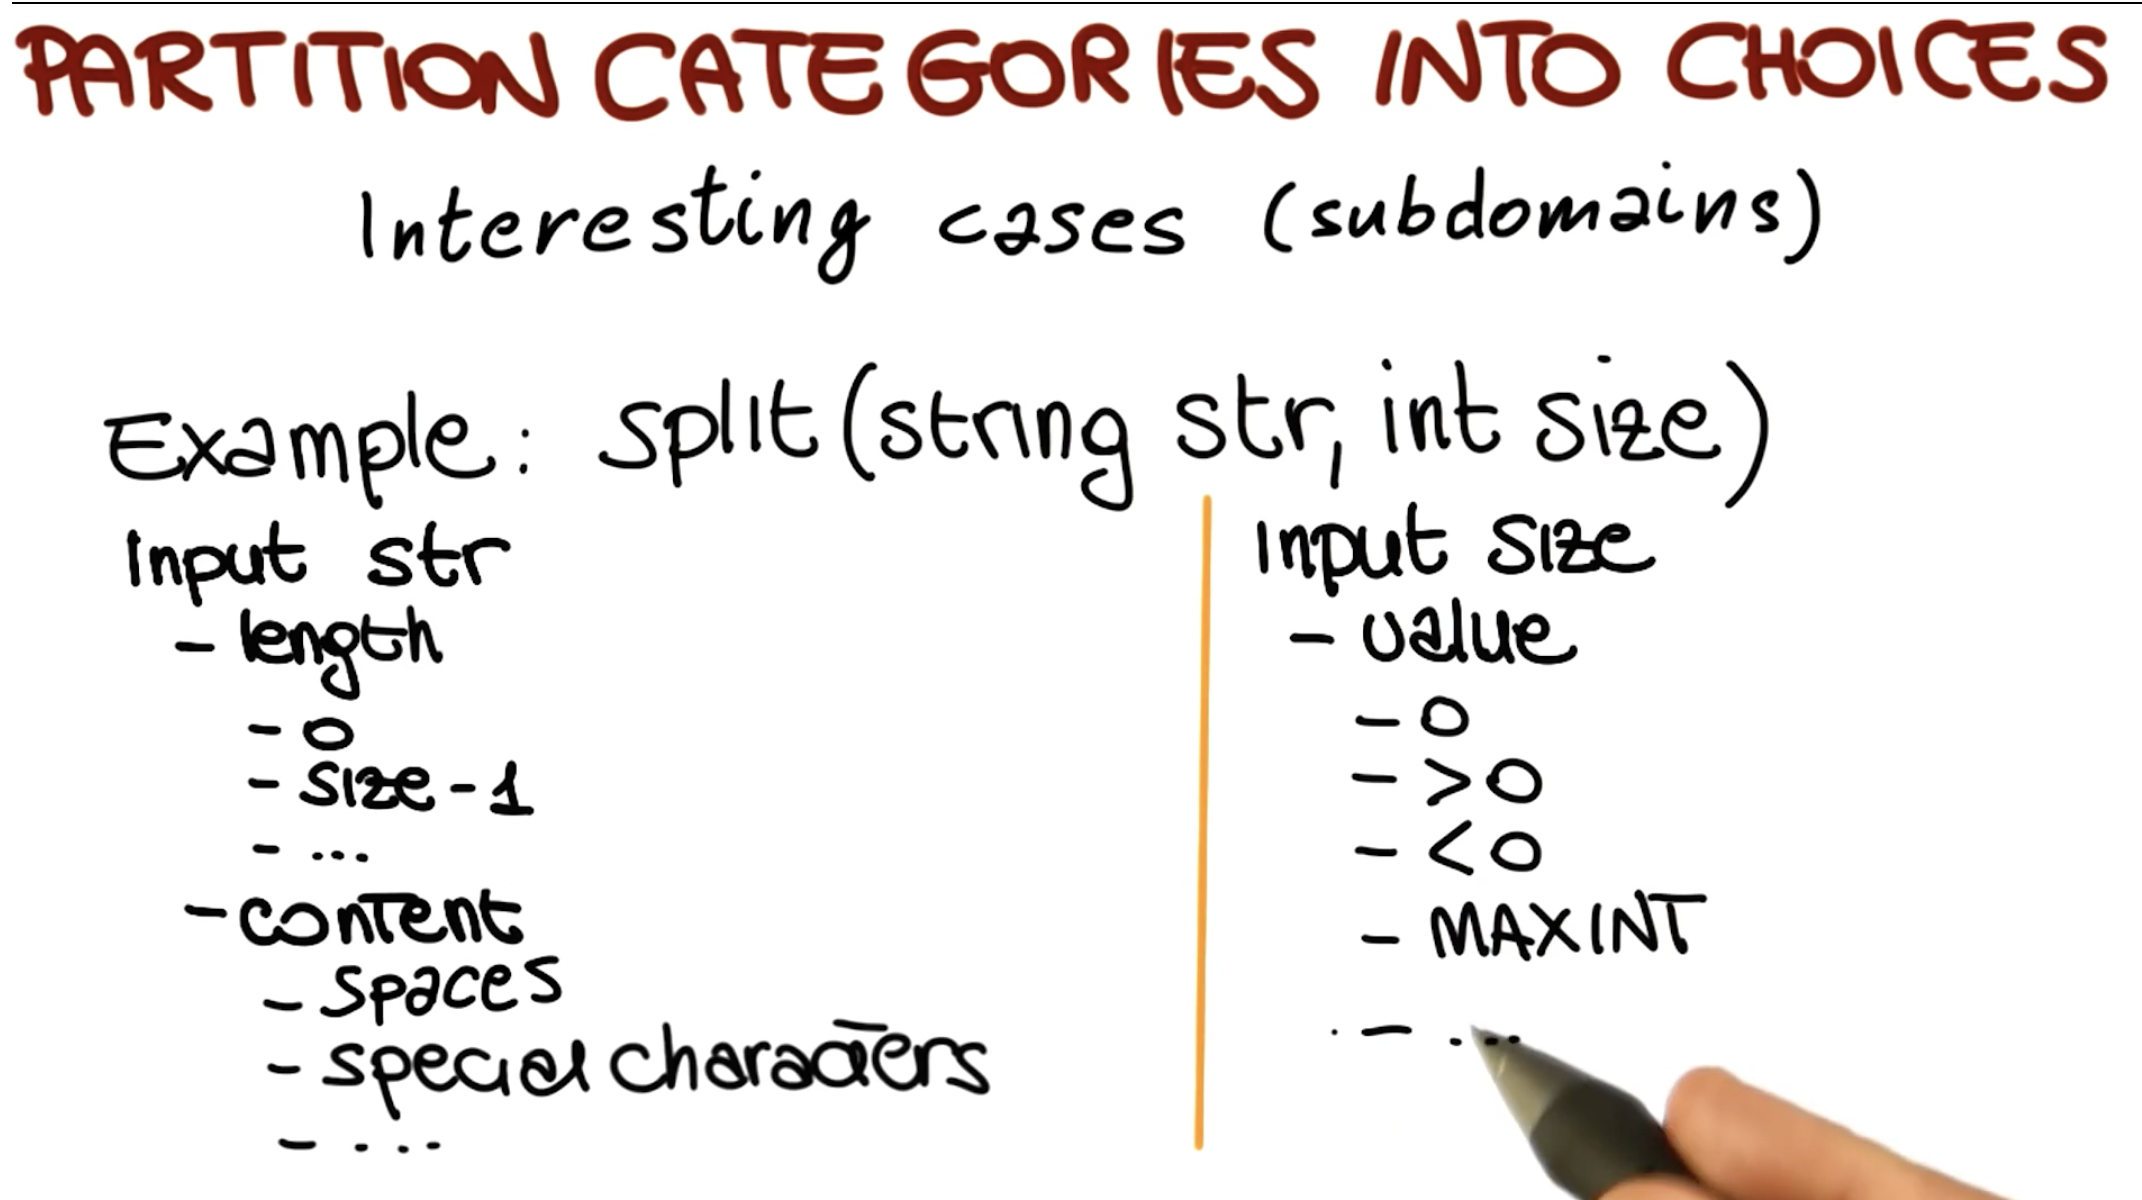 PARTITION CATEGORIES INTO CHOICES
Interesting cases (subdomains)
Example: split(string str, int size)
Input str
- length
- 0
- size-1
- ...
- content
- spaces
- special characters
- ....
Input size
- value
- 0
- >0
- <0
- MAXINT
- ...